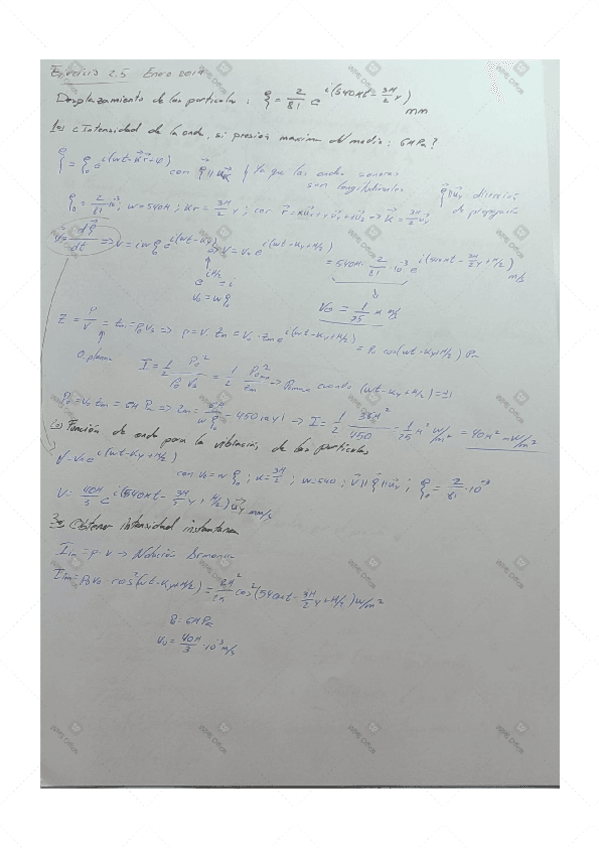 Ejercicio 2.5 Enero 2017
Desplazamiento de las partículas: ξ = 2/81 e^i(540πt - 3π/2 y) mm
1º) ¿Intensidad de la onda, si presión maxima del medio: 6π Pa?
ξ = ξ₀ e^i(wt - kr - φ) con ξ ∥ u_k } Ya que las ondas sonoras
son longitudinales
ξ ∥ u_y dirección
de propagación
ξ₀ = 2/81 ; w = 540π ; kr = 3π/2 y ; con r = x u_x + y u_y + => k = 3π/2 u_y
v = dξ/dt => v = iw ξ₀ e^i(wt - ky) => v = v₀ e^i(wt - ky + π/2) = 540π · 2/81 · 10^-3 e^i(540πt - 3π/2 y + π/2) m/s
e^iπ/2 = i
v₀ = w ξ₀
v₀ = 1/75 π m/s
Z = p/v = Zm = p₀/v₀ => p = v · Zm = v₀ · Zm e^i(wt - ky + π/2) = P₀ cos(wt - ky + π/2) Pa
O. plana
I = 1/2 P₀²/ρ₀ v₀ = 1/2 P₀²/Zm -> Pmax cuando (wt - ky + π/2) = ±1
P₀ = v₀ Zm = 6π Pa => Zm = 6π/w ξ₀ = 450 rayl => I = 1/2 36π²/450 = 1/25 π² W/m² = 40π² mW/m²
2º) Función de onda para la vibración de las partículas
v = v₀ e^i(wt - ky + π/2)
con v₀ = w ξ₀ ; k = 3π/2 ; w = 540 ; v ∥ ξ ∥ u_y ; ξ₀ = 2/81 · 10^-3
v = 40π/3 e^i(540πt - 3π/2 y + π/2) u_y mm/s
3º) Obtener intensidad instantanea
Iin = p · v -> Notación Armonica
Iin = p₀ v₀ · cos²(wt - ky + π/2) = 2π²/25 cos²(540πt - 3π/2 y + π/2) W/m²
P₀ = 6π Pa
v₀ = 40π/3 · 10^-3 m/s